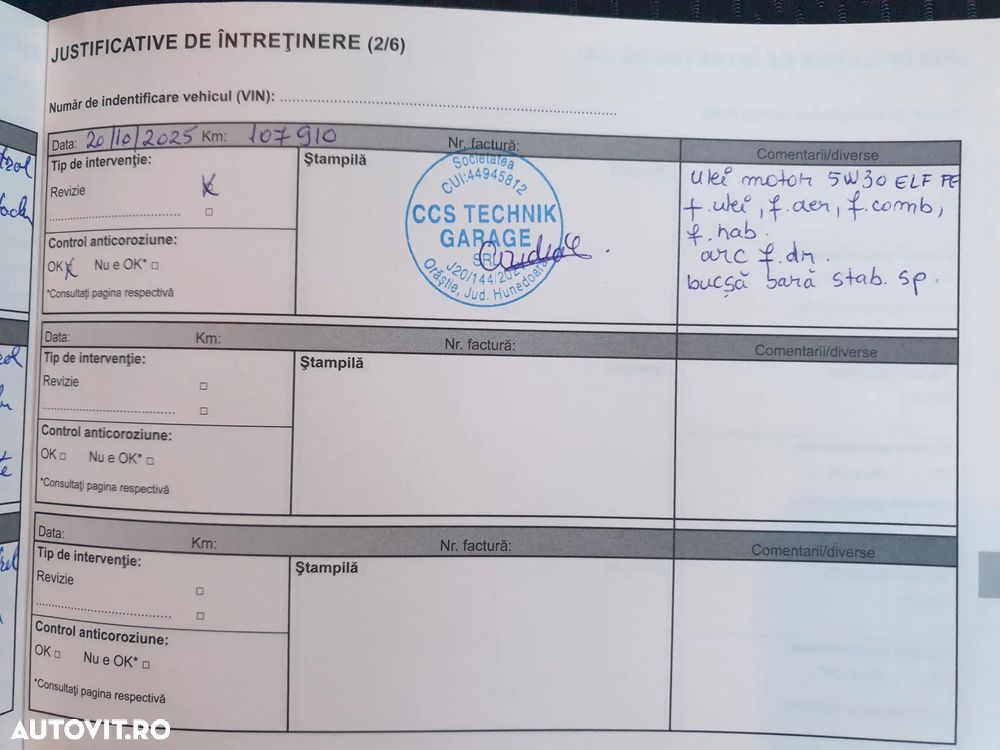 JUSTIFICATIVE DE ÎNTREŢINERE (2/6)
Număr de indentificare vehicul (VIN): ........................................
Data: 20/10/2025 Km: 107 910 Nr. factură: Comentarii/diverse
Tip de intervenţie:
Revizie
Control anticoroziune:
OK Nu e OK* □
*Consultaţi pagina respectivă
Ştampilă
Societatea
CUI:44945812
CCS TECHNIK
GARAGE
SRL
J20/144/202
Orăştie, Jud. Hunedoara
Ulei motor 5W30 ELF FE
f. ulei, f. aer, f. comb,
f. hab.
arc f. dr.
bucşă bară stab. sp.
Data: Km: Nr. factură: Comentarii/diverse
Tip de intervenţie:
Revizie □
Control anticoroziune:
OK □ Nu e OK* □
*Consultaţi pagina respectivă
Ştampilă
Data: Km: Nr. factură: Comentarii/diverse
Tip de intervenţie:
Revizie □
Control anticoroziune:
OK □ Nu e OK* □
*Consultaţi pagina respectivă
Ştampilă
AUTOVIT.RO